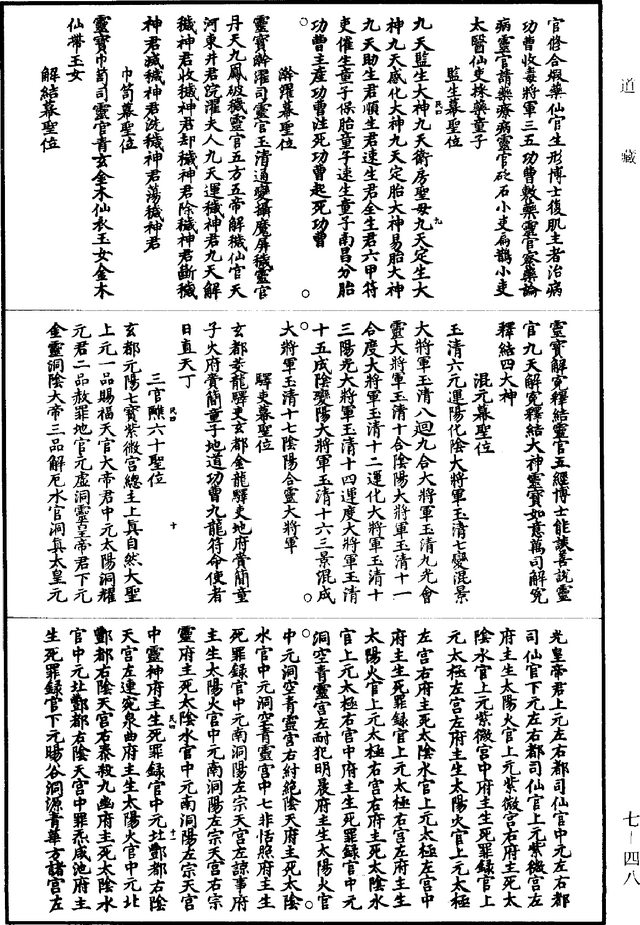 道藏
官修合煆藥仙官生形博士復肌主者治病
功曹收毒將軍三五功曹敷藥靈官察藥論
病靈官請藥療病靈官砭石小吏扁鵲小吏
太醫仙吏採藥童子
監生幕聖位
九天監生大神九天衛房聖母九天定生大
神九天感化大神九天定胎大神易胎大神
九天助生君順生君速生君全生君六甲符
吏催生童子保胎童子速生童子南昌分胎
功曹主產功曹注死功曹起死功曹
澣濯幕聖位
靈寶澣濯司靈官玉清通變攝魔屏穢靈官
丹天九鳳破穢靈官五方五帝解穢仙官天
河東井君浣濯夫人九天運穢神君九天解
穢神君收穢神君却穢神君除穢神君斷穢
神君滅穢神君洗穢神君蕩穢神君
巾笥幕聖位
靈寶巾笥司靈官青玄金木仙衣玉女金木
仙帶玉女
解結幕聖位
靈寶解冤釋結靈官五經博士能談善說靈
官九天解冤釋結大神靈寶如意萬司解冤
釋結四大神
混元幕聖位
玉清六元運陽化陰大將軍玉清七變混景
大將軍玉清八迴九合大將軍玉清九光會
靈大將軍玉清十合陰陽大將軍玉清十一
合度大將軍玉清十二運化大將軍玉清十
三陽光大將軍玉清十四運度大將軍玉清
十五成陰變陽大將軍玉清十六三景混成
大將軍玉清十七陰陽合靈大將軍
驛吏幕聖位
玄都茭龍驛吏玄都金龍驛吏地府賫簡童
子火府賫簡童子地道功曹九龍符命使者
日直天丁
三官醮六十聖位
玄都元陽七寶紫微宮總主上真自然大聖
上元一品賜福天官大帝君中元太陽洞耀
元君二品赦罪地官元虛洞靈帝君下元
金靈洞陰大帝三品解厄水官洞真太皇元
光皇帝君上元左右都司仙官中元左右都
司仙官下元左右都司仙官上元紫微宮左
府主生太陽火官上元紫微宮右府主死太
陰水官上元紫微宮中府主生死罪録官上
元太極左宮左府主生太陽火官上元太極
左宮右府主死太陰水官上元太極左宮中
府主生死罪録官上元太極右宮左府主生
太陽火官上元太極右宮右府主死太陰水
官上元太極右宮中府主生死罪録官中元
洞空青靈宮左耐犯明晨府主生太陽火官
中元洞空青靈宮右紂絕陰天府主死太陰
水官中元洞空青靈宮中七非恬照府主生
死罪録官中元南洞陽左宗天宮左諒事府
主生太陽火官中元南洞陽左宗天宮右宗
靈府主死太陰水官中元南洞陽左宗天宮
中靈神府主生死罪録官中元北酆都右陰
天宮左連宛泉曲府主生太陽火官中元北
酆都右陰天宮右泰殺九幽府主死太陰水
官中元北酆都右陰天宮中罪炁咸池府主
生死罪録官下元暘谷洞源青華方諸宮左
七—四八